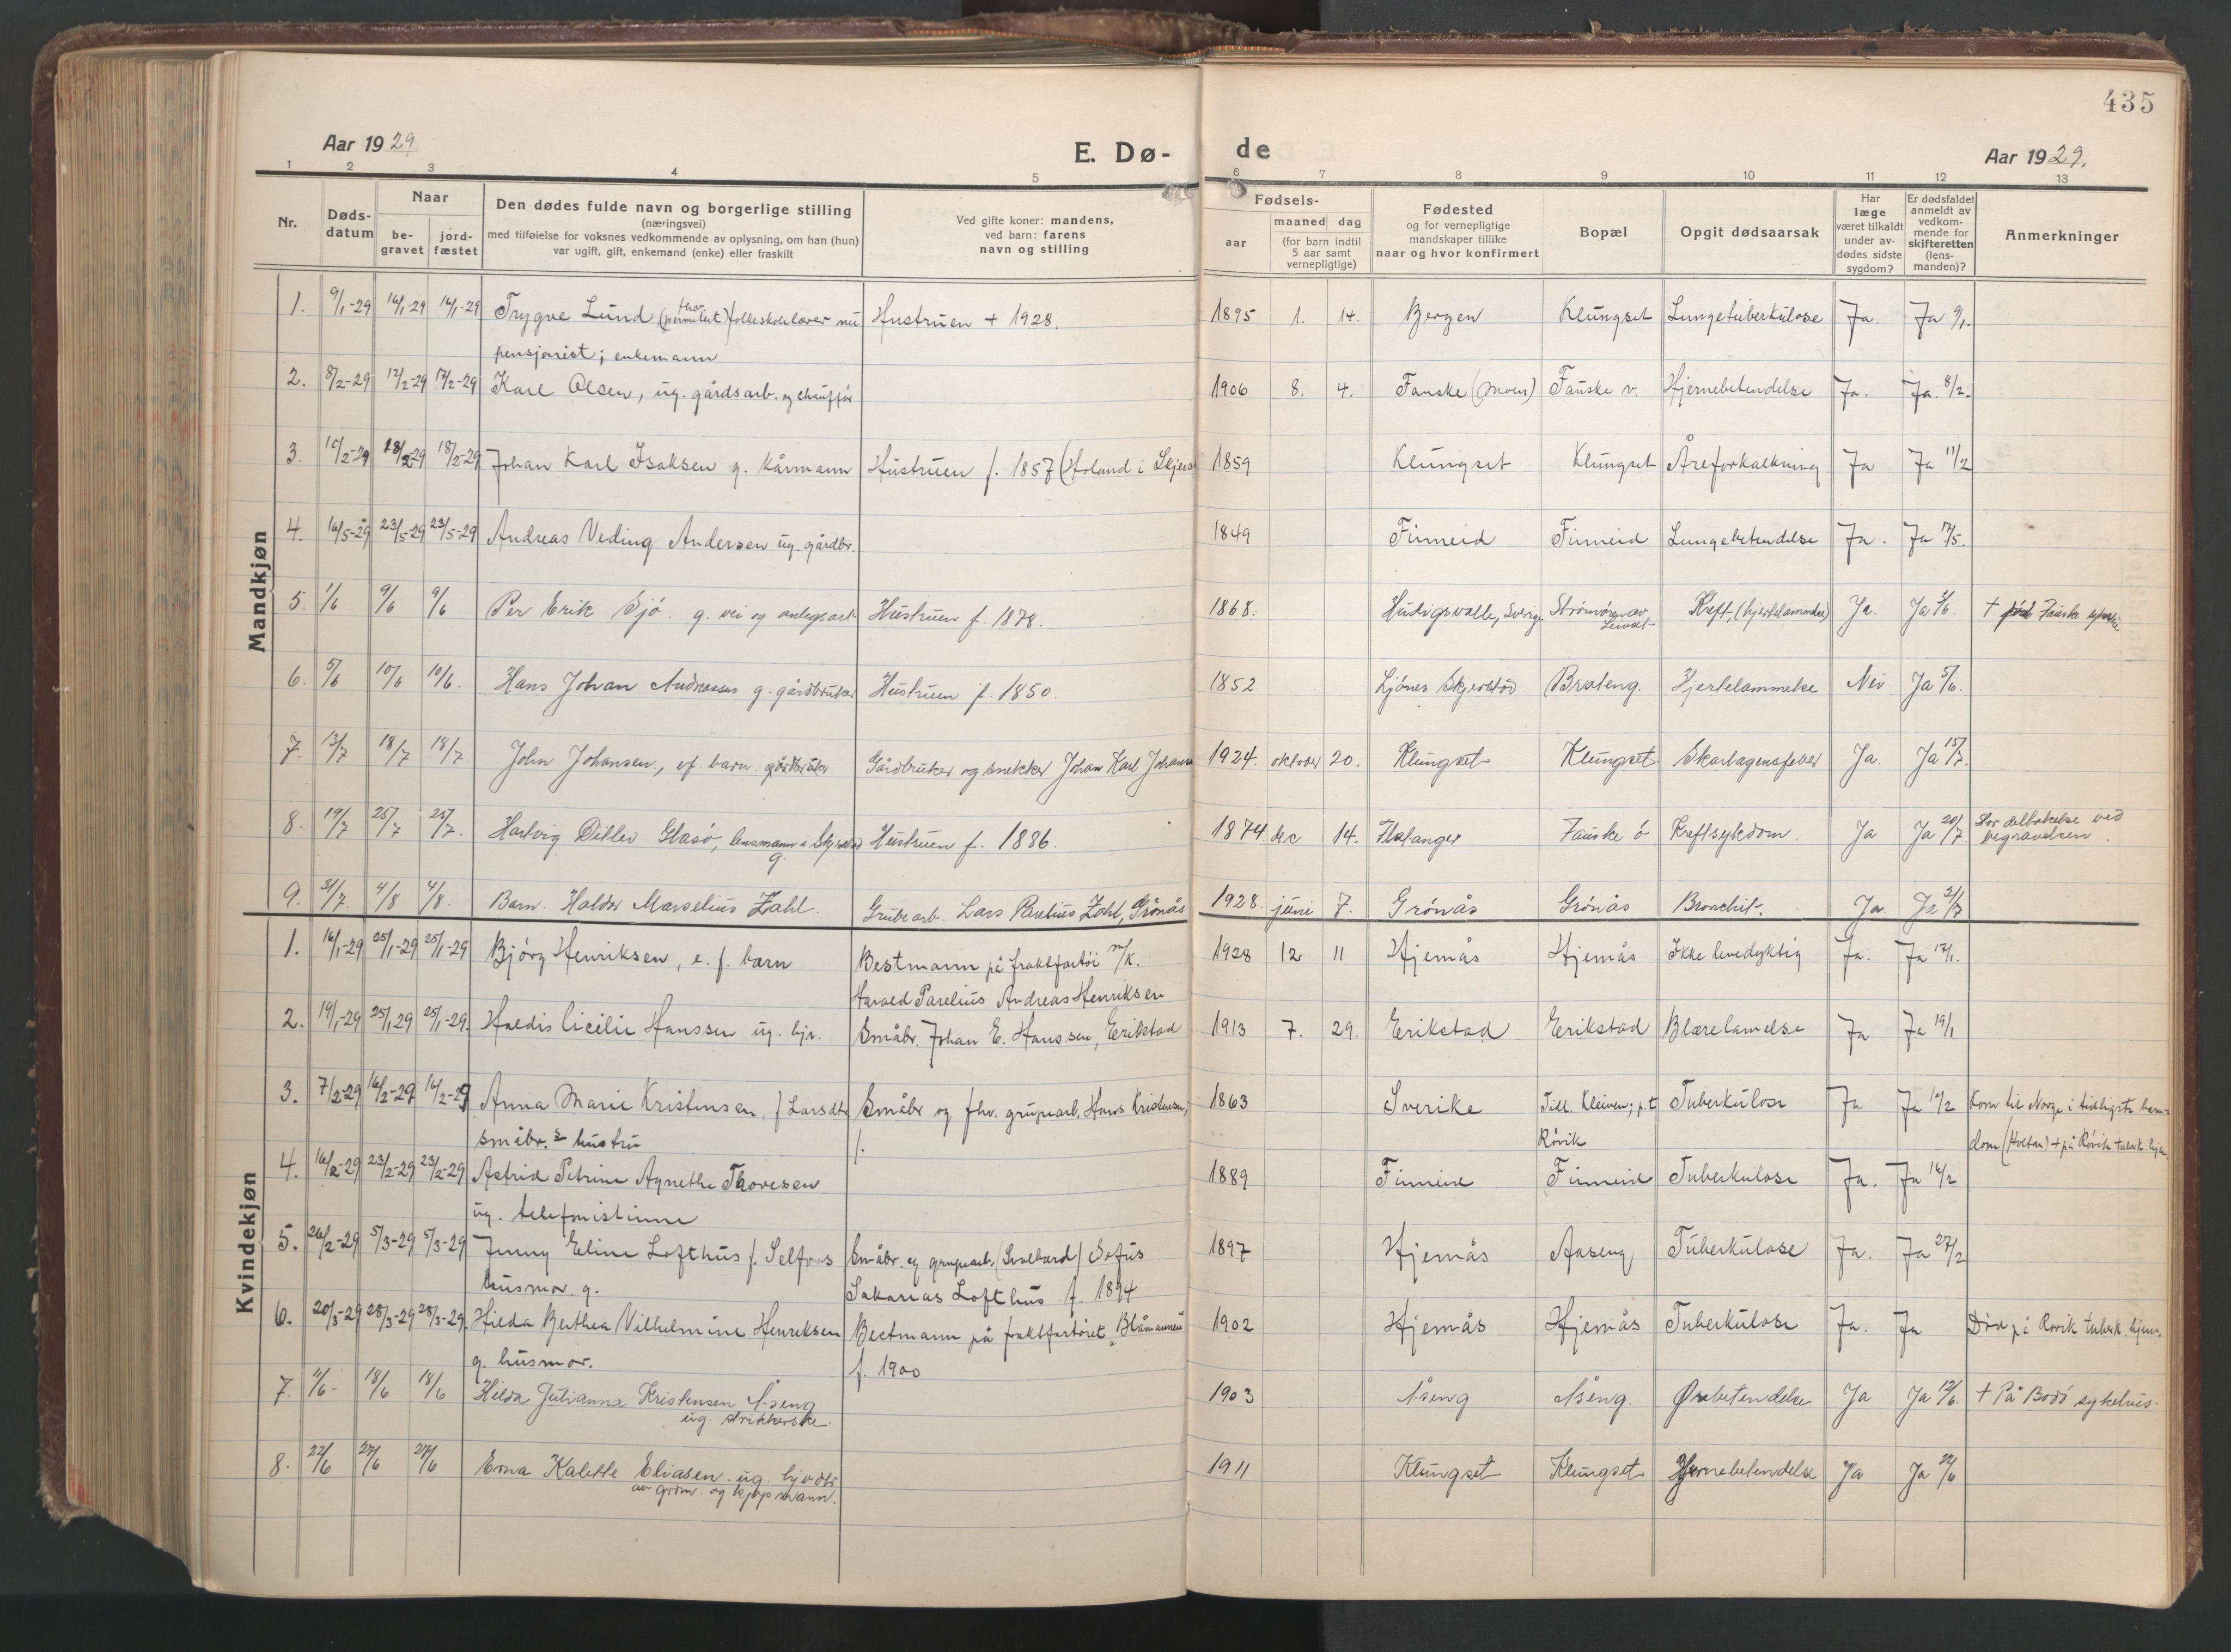 435
Aar 1929
E. Dø-
de
Aar 1929.
1 2 3 4 5 6 7 8 9 10 11 12 13
Nr.
Døds-
datum
Naar
be-
gravet
jord-
fæstet
Den dødes fulde navn og borgerlige stilling
(næringsvei)
med tilføielse for voksnes vedkommende av oplysning, om han (hun)
var ugift, gift, enkemand (enke) eller fraskilt
Ved gifte koner: mandens,
ved barn: farens
navn og stilling
Fødsels-
aar
maaned dag
(for barn indtil
5 aar samt
vernepligtige)
Fødested
og for vernepligtige
mandskaper tillike
naar og hvor konfirmert
Bopæl
Opgit dødsaarsak
Har
læge
været tilkaldt
under av-
dødes sidste
sygdom?
Er dødsfaldet
anmeldt av
vedkom-
mende for
skifteretten
(lens-
manden)?
Anmerkninger
Mandkjøn
1. 9/1-29 16/1-29 16/1-29 Trygve Lund (permitert) folkeskolelærer nu Hustruen + 1928. 1895 1. 14. Bergen Klungset Lungetuberkulose Ja. Ja 9/1.
pensjonist; enkemann
2. 8/2-29 17/2-29 17/2-29 Karl Olsen, ug. gårdsarb. og chauffør 1906 8. 4. Fauske (Moen) Fauske v. Hjernebetendelse Ja. Ja. 8/2.
3. 10/2-29 18/2-29 18/2-29 Johan Karl Isaksen g. kårmann Hustruen f. 1857 (Holand i Skjers 1859 Klungset Klungset Åreforkalkning Ja Ja 11/2
4. 16/5-29 23/5-29 23/5-29 Andreas Veding Andersen ug. gårdbr. 1849 Finneid Finneid Lungebetendelse Ja. Ja 17/5.
5. 1/6 9/6 9/6 Per Erik Sjö. g. vei og anlegsarb Hustruen f. 1878. 1868. Hudigsvalle, Sverige Kreft, (hjertelammelse) Ja. Ja + Fauske
6. 5/6 10/6 10/6. Hans Johan Andreassen g. gårdbruker Hustruen f. 1850. 1852 Ljönes Skjerstad Brateng. Hjertelammelse Nei Ja 5/6.
7. 13/7 18/7 18/7 John Johansen, ef. barn. gårdbruker Gårdbruker og snekker Johan Karl Johans 1924. oktober 20. Klungset Klungset Skarlagensfeber Ja. Ja 15/7.
8. 19/7 25/7 25/7. Hartvig Ditlev Glasö, lensmann i Skjerstad Hustruen f. 1886. 1874 dec 14. Flatanger Fauske ö Kreftsykdom. Ja Ja 20/7 Stor deltakelse ved
g. begravelsen.
9. 31/7. 4/8 4/8. Barn. Haldor Marselius Zahl. Grubearb. Lars Paulius Zahl, Grönås 1928. juni 7. Grönås Grönås Bronchit. Ja Ja 31/7
Kvindekjøn
1. 16/1-29 25/1-29 25/1-29 Bjørg Henriksen, e. f. barn Bestmann på fraktfartöi m/k. 1928 12 11 Hjemås Hjemås Ikke levedyktig Ja. Ja 17/1.
Harald Parelius Andreas Henriksen
2. 19/1-29 25/1 29 25/1-29. Haldis Cicilie Hanssen ug. hjv. Småbr. Johan E. Hanssen, Erikstad 1913 7. 29. Erikstad Erikstad Blærelamelse Ja Ja 19/1
3. 7/2-29 16/2-29 16/2-29 Anna Marie Kristensen, f Larsdtr Småbr og fhv. grupearb. Hans Kristensen, 1863 Sverike Till. Kleiven; p.t Tuberkulose Ja Ja 10/2 Kom til Norge i tidligste barn-
småbr.s hustru f. Rövik dom (Holtan) + på Rövik tuberk. hjem.
4. 16/2-29 23/2-29 23/2-29 Astrid Petrine Agnethe Thovesen 1889 Finneid Finneid Tuberkulose Ja. Ja 16/2
ug. telefonistinne
5. 26/2-29 5/3-29 5/3-29 Jenny Eline Lofthus f. Selfors Småbr. og grupearb. (Svalbard) Sofus 1897 Hjemås Aaseng Tuberkulose Ja. Ja 27/2
husmor. g. Sakarias Lofthus f. 1894
6. 20/3-29 28/3-29 28/3-29. Hilda Berthea Vilhelmine Henriksen Bestmann på fraktfartöiet "Blåmannen" 1902 Hjemås Hjemås Tuberkulose Ja. Ja Död på Rövik tuberk. hjem.
g. husmor. f. 1900
7. 11/6- 18/6 18/6 Hilda Julianna Kristensen Åseng 1903 Åseng Åseng. Ørebetendelse Ja Ja 12/6. + På Bodö sykehus.
ug. strikkerske.
8. 22/6 27/6 27/6 Erna Kalette Eliasen. ug. hj.v dtr 1911 Klungset Klungset Hjernebetendelse Ja Ja 22/6
av grdm. og kjöpmann.